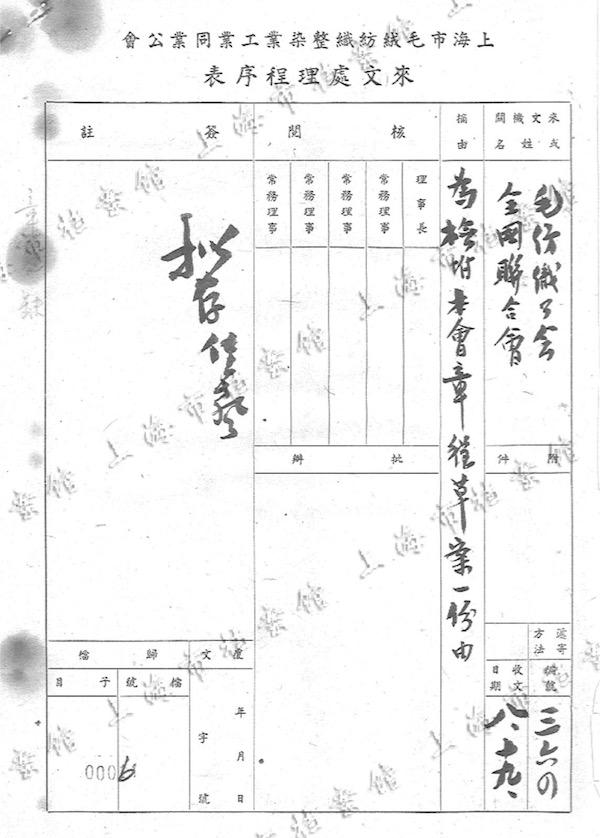 上海市毛絨紡織整染業工業同業公會
來文處理程序表
來文機關或姓名
毛紡織工會
全國聯合會
附件
遞寄方法
編號
三六〇
收文日期
八、十九、
摘由
為檢附本會章程草案一份由
核閱
理事長
常務理事
常務理事
常務理事
常務理事
批辦
簽註
擬存
歸檔
檔號
子目
0006
覆文
年月日
字號
上海市檔案館